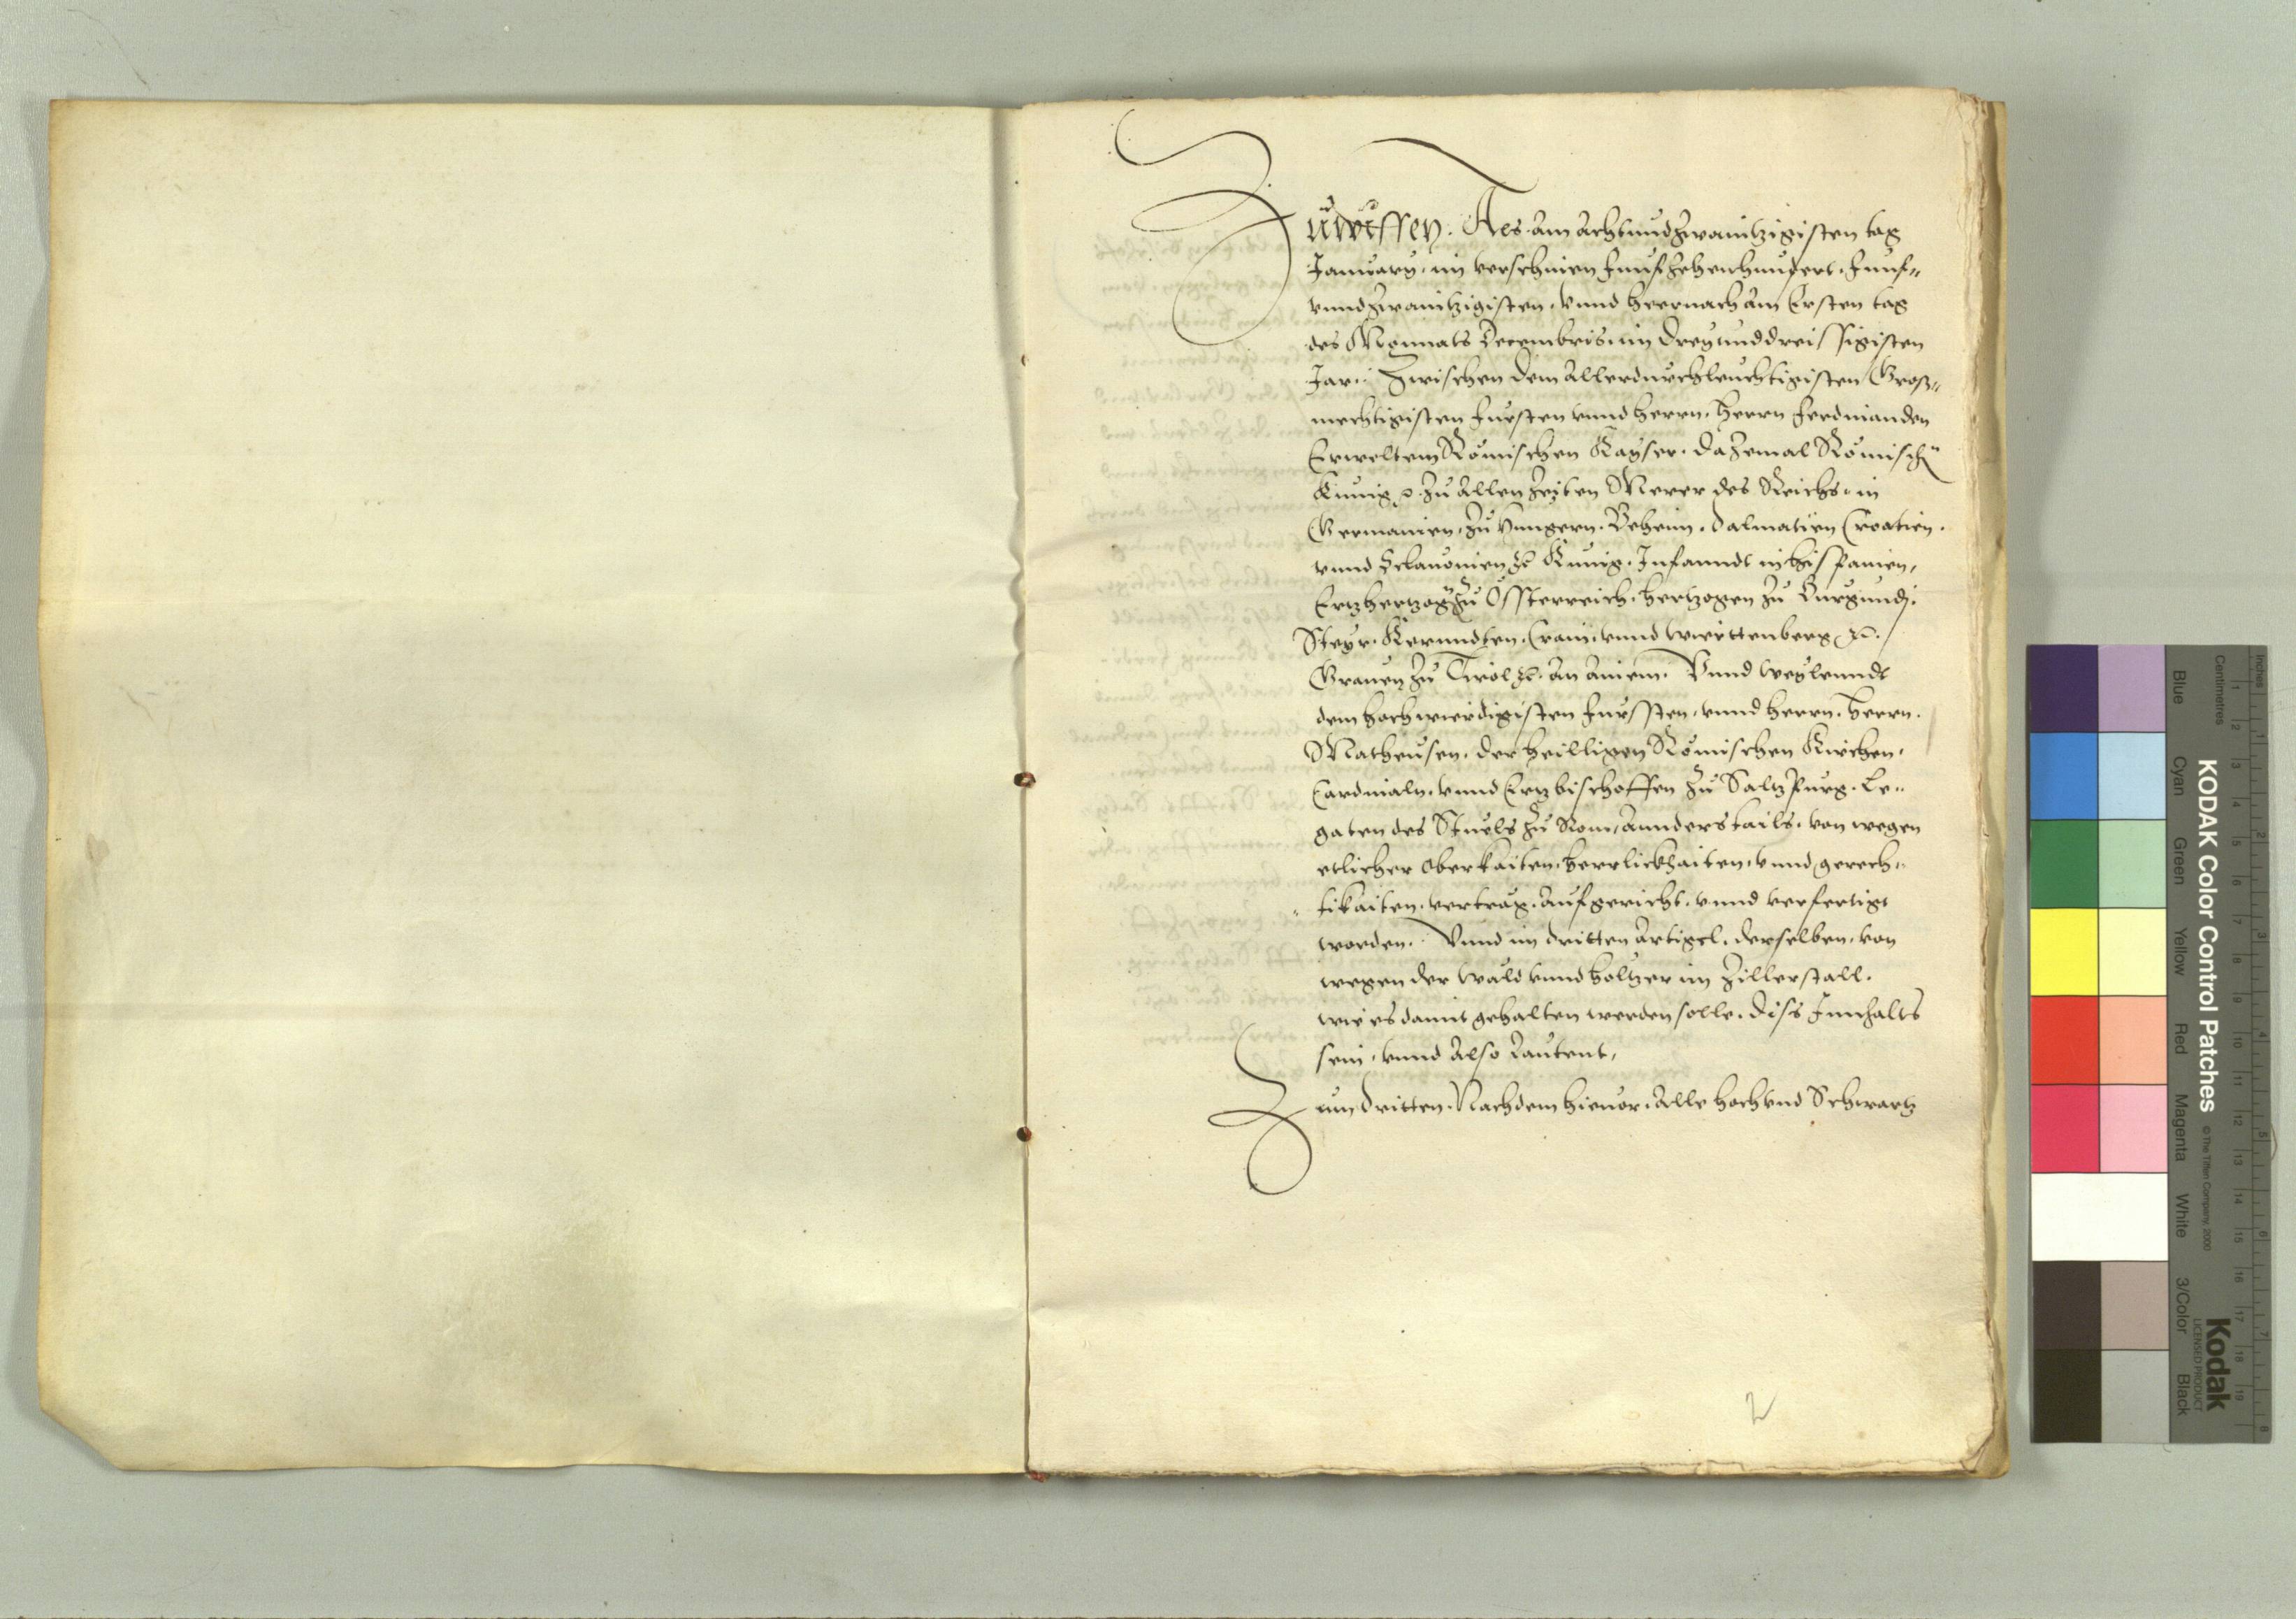 Zuwissen. Als am achtundzwaintzigisten tag
January. im verschinen Funfzehenhundert. Funf„
vnndzwaintzigisten. vnnd hernach am Ersten tag
des Monnats Decembris. im dreyunddreissigisten
Jar. Zwischen dem allerdurchleuchtigisten Groß„
mechtigisten Fursten vnnd herrn. herrn Ferdinanden
Erweltem Römischen Kayser. dazemal Römischn
Kunig. zu allen zeiten Merer des Reichs. in
Germanien. zu Hungern. Beheim. Dalmatien Croatien.
vnnd Sclauonien etc. Kunig. Infanndt in hispanien,
Ertzhertzog zu Össterreich. hertzogen zu Burgundj.
Steyr. Kernndten. Crain. vnnd wirttenberg etc.
Grauen zu Tirol etc. an ainem. Vnnd weylenndt
dem hochwirdigisten Furssten. vnnd herrn. herrn.
Matheusen. der heilligen Römischen Kirchen.
Cardinaln. vnnd Ertzbischoffen zu Saltzpurg. Le„
gaten des Stuels zu Rom, annderstails. von wegen
etlicher Oberkaiten. herrlichkaiten. vnnd gerech„
„tikaiten. vertrag. aufgericht. vnnd verfertigt
worden. Vnnd im dritten artigel. derselben. von
wegen der wäld vnnd höltzer im Zillerstall.
wie es damit gehalten werden solle. diss Innhalts
sein. vnnd also lautent,
Zum dritten. Nachdem hieuor. alle hoch vnd Schwartz
2
KODAK Color Control Patches
© The Tiffen Company, 2000
Kodak
LICENSED PRODUCT
Inches
Centimetres
Blue Cyan Green Yellow Red Magenta White 3/Color Black